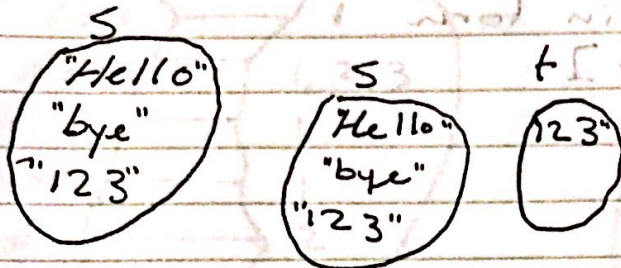 S
"Hello"
"bye"
"123"
S
"Hello"
"bye"
"123"
t
"123"